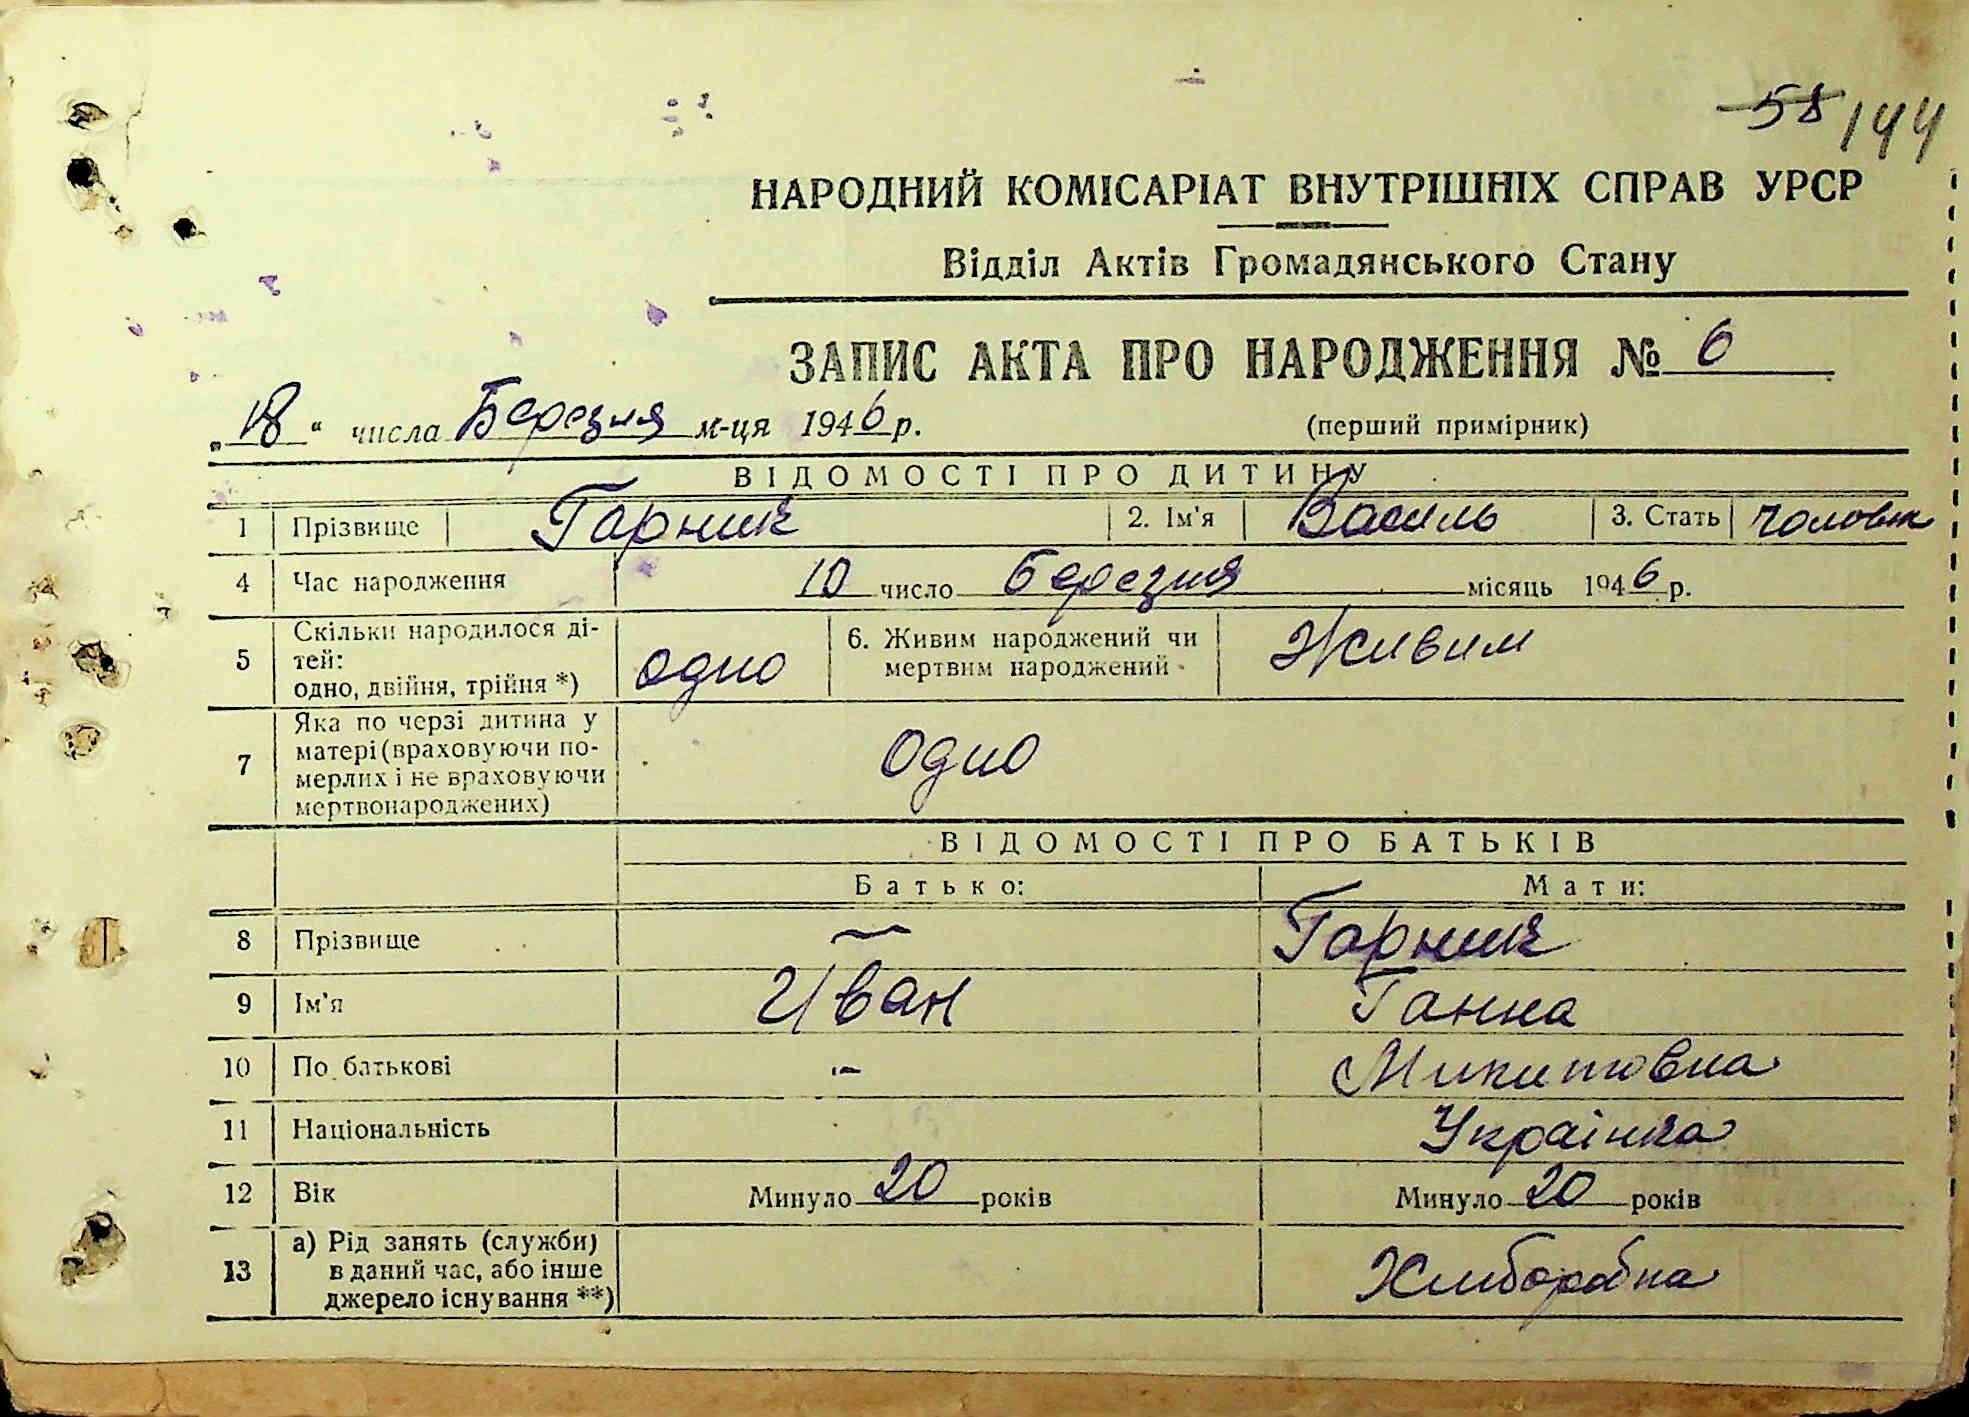 58 144
НАРОДНИЙ КОМІСАРІАТ ВНУТРІШНІХ СПРАВ УРСР
Відділ Актів Громадянського Стану
ЗАПИС АКТА ПРО НАРОДЖЕННЯ № 6
„18“ числа Березня м-ця 1946 р. (перший примірник)
ВІДОМОСТІ ПРО ДИТИНУ
1 Прізвище Гарник 2. Ім'я Василь 3. Стать чоловік
4 Час народження 10 число березня місяць 1946 р.
5 Скільки народилося ді-
тей:
одно, двійня, трійня *) одно 6. Живим народжений чи
мертвим народжений Живим
7 Яка по черзі дитина у
матері (враховуючи по-
мерлих і не враховуючи
мертвонароджених) одно
ВІДОМОСТІ ПРО БАТЬКІВ
Батько: Мати:
8 Прізвище — Гарник
9 Ім'я Иван Ганна
10 По батькові - Микитовна
11 Національність Українка
12 Вік Минуло 20 років Минуло 20 років
13 а) Рід занять (служби)
в даний час, або інше
джерело існування **) Хлиборобка